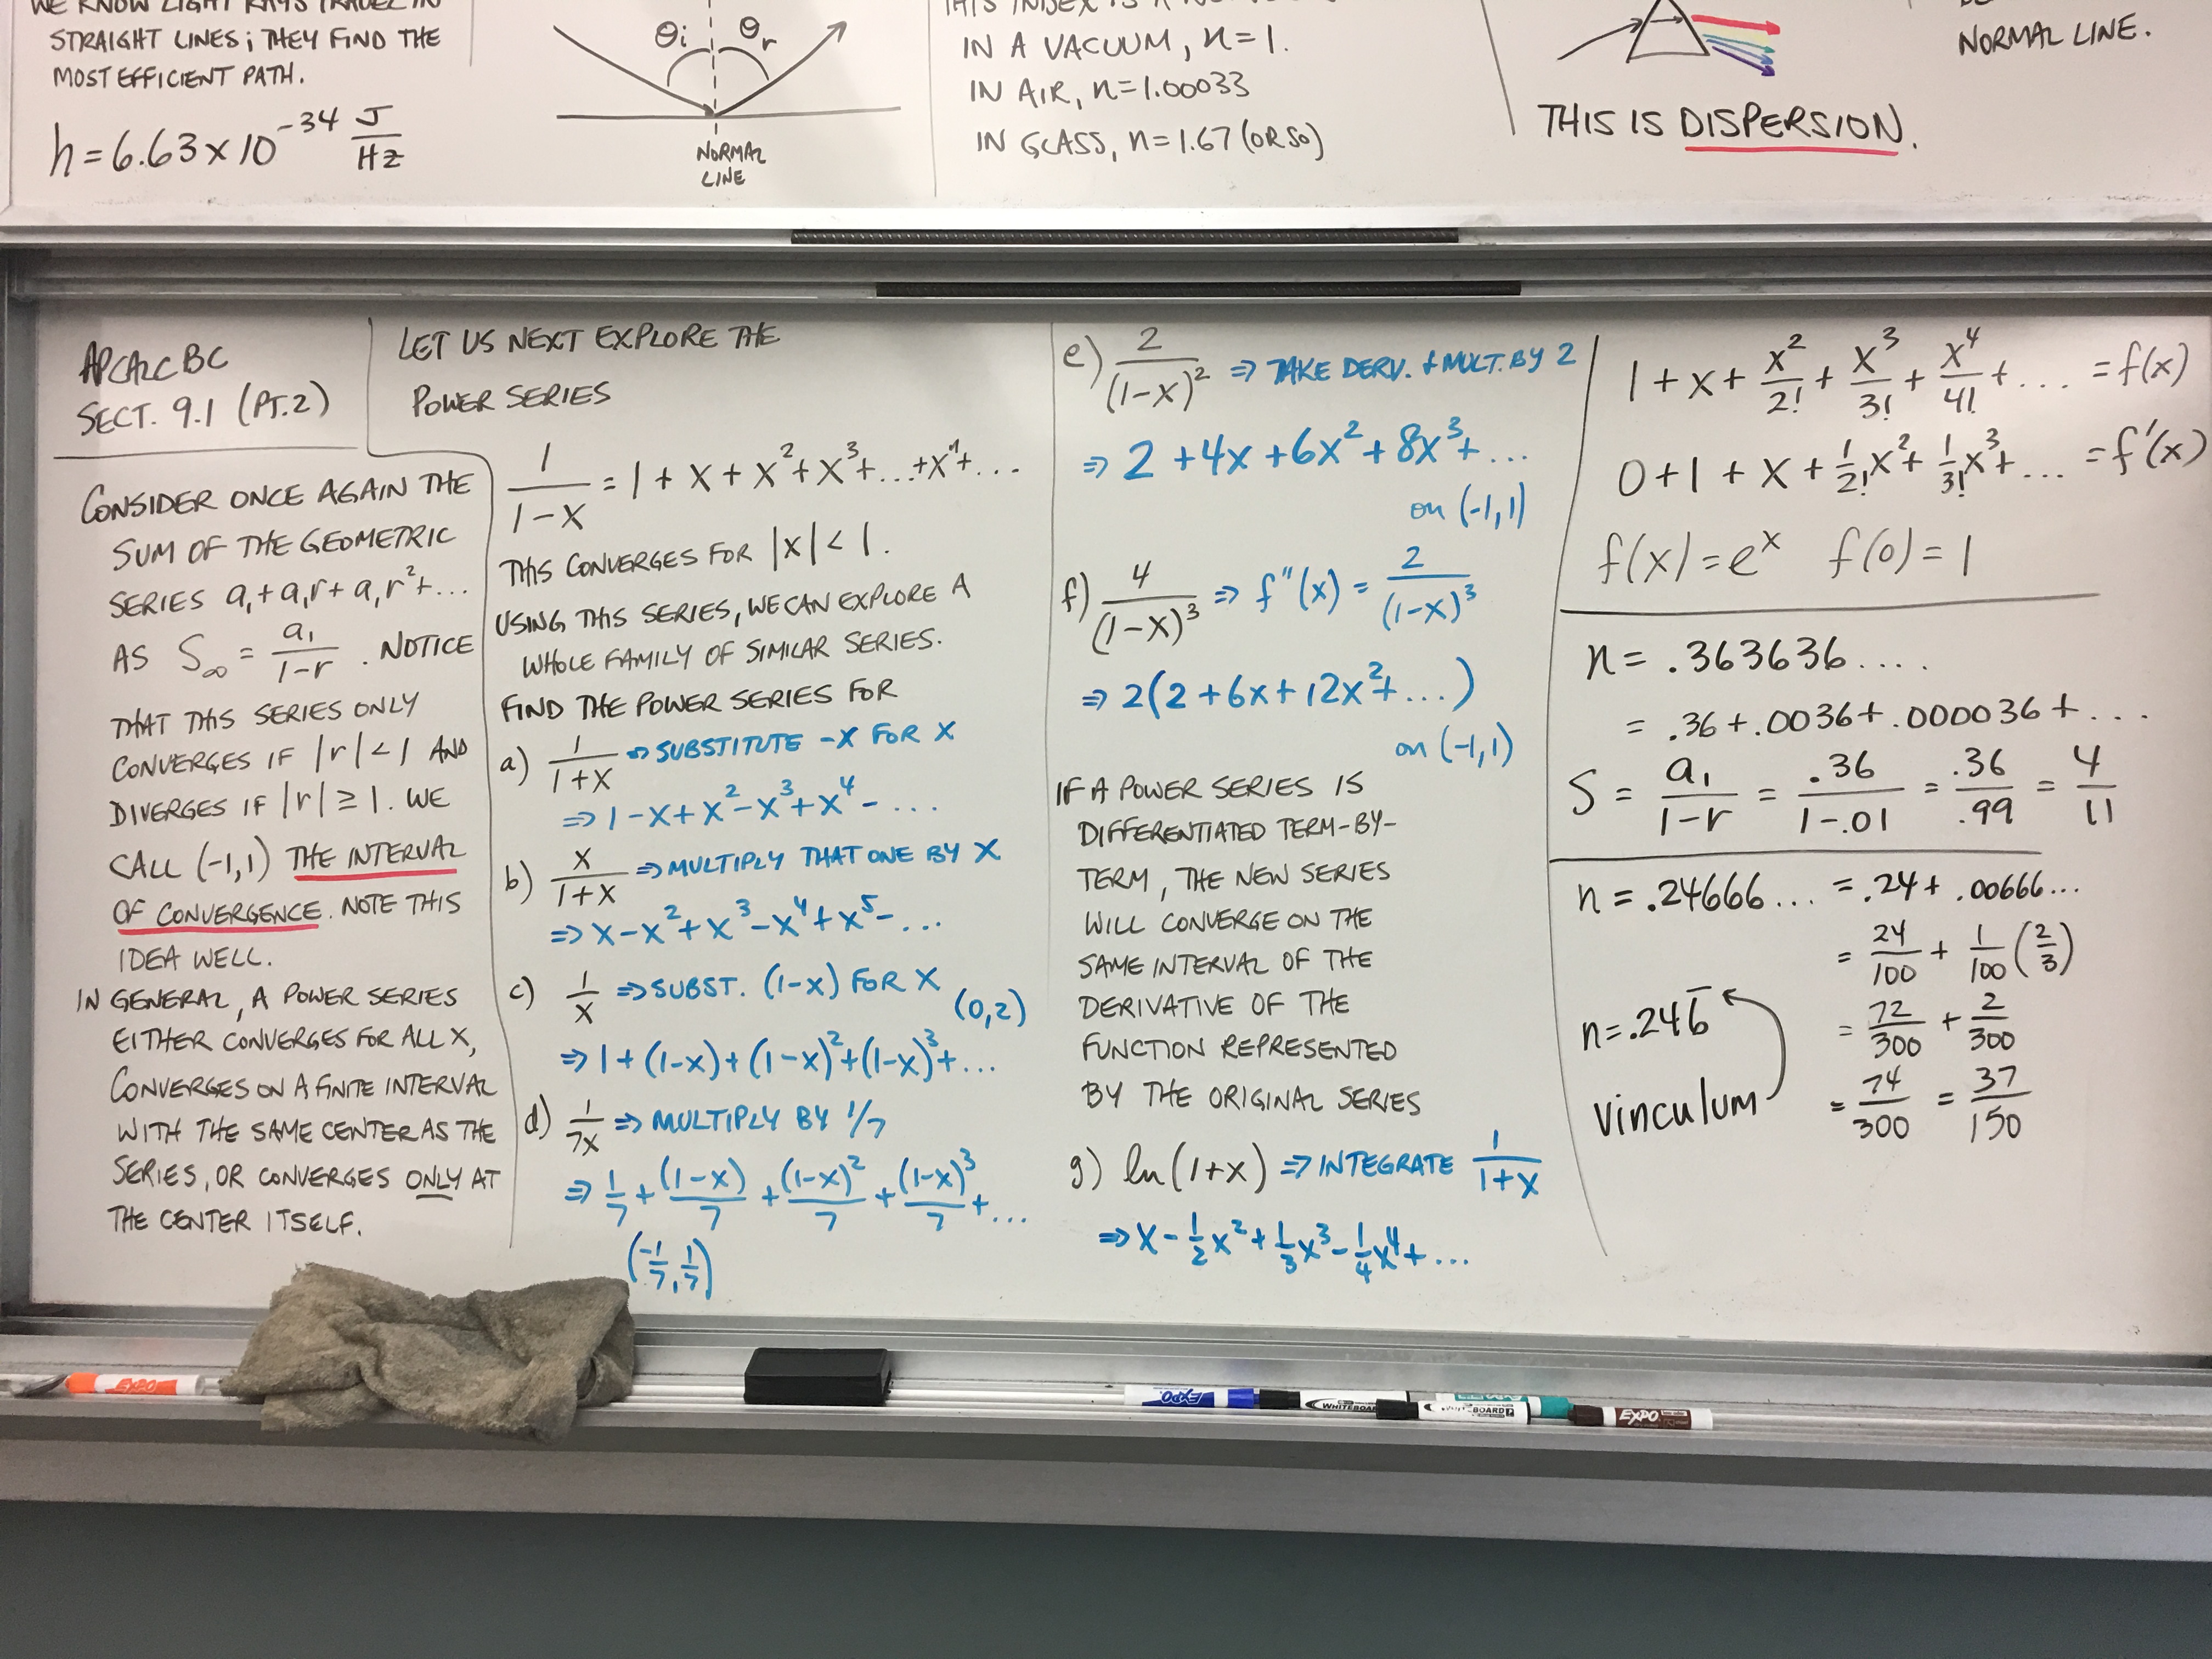 WE KNOW LIGHT RAYS TRAVEL IN
STRAIGHT LINES; THEY FIND THE
MOST EFFICIENT PATH.
h = 6.63 x 10^-34 J/Hz
θi θr
NORMAL
LINE
THIS INDEX IS A
IN A VACUUM, n=1.
IN AIR, n=1.00033
IN GLASS, n=1.67 (OR SO)
THIS IS DISPERSION.
NORMAL LINE.
AP CALC BC
SECT. 9.1 (PT.2)
CONSIDER ONCE AGAIN THE
SUM OF THE GEOMETRIC
SERIES a₁+a₁r+a₁r²+...
AS S∞ = a₁/(1-r). NOTICE
THAT THIS SERIES ONLY
CONVERGES IF |r|<1 AND
DIVERGES IF |r|≥1. WE
CALL (-1,1) THE INTERVAL
OF CONVERGENCE. NOTE THIS
IDEA WELL.
IN GENERAL, A POWER SERIES
EITHER CONVERGES FOR ALL X,
CONVERGES ON A FINITE INTERVAL
WITH THE SAME CENTER AS THE
SERIES, OR CONVERGES ONLY AT
THE CENTER ITSELF.
LET US NEXT EXPLORE THE
POWER SERIES
1/(1-x) = 1 + x + x² + x³ + ... + xⁿ + ...
THIS CONVERGES FOR |x| < 1.
USING THIS SERIES, WE CAN EXPLORE A
WHOLE FAMILY OF SIMILAR SERIES.
FIND THE POWER SERIES FOR
a) 1/(1+x) ⇒ SUBSTITUTE -X FOR X
⇒ 1-x+x²-x³+x⁴-....
b) x/(1+x) ⇒ MULTIPLY THAT ONE BY X
⇒ x-x²+x³-x⁴+x⁵-...
c) 1/x ⇒ SUBST. (1-x) FOR X (0,2)
⇒ 1+(1-x)+(1-x)²+(1-x)³+...
d) 1/7x ⇒ MULTIPLY BY 1/7
⇒ 1/7 + (1-x)/7 + (1-x)²/7 + (1-x)³/7 + ...
(-1/7, 1/7)
e) 2/(1-x)² ⇒ TAKE DERV. + MULT. BY 2
⇒ 2+4x+6x²+8x³+...
on (-1,1)
f) 4/(1-x)³ ⇒ f''(x) = 2/(1-x)³
⇒ 2(2+6x+12x²+...)
on (-1,1)
IF A POWER SERIES IS
DIFFERENTIATED TERM-BY-
TERM, THE NEW SERIES
WILL CONVERGE ON THE
SAME INTERVAL OF THE
DERIVATIVE OF THE
FUNCTION REPRESENTED
BY THE ORIGINAL SERIES
g) ln(1+x) ⇒ INTEGRATE 1/(1+x)
⇒ x - 1/2x² + 1/3x³ - 1/4x⁴ + ...
1 + x + x²/2! + x³/3! + x⁴/4! + .... = f(x)
0 + 1 + x + 1/2!x² + 1/3!x³ + ... = f'(x)
f(x) = eˣ f(0) = 1
n = .363636....
= .36+.0036+.000036+...
S = a₁/(1-r) = .36/(1-.01) = .36/.99 = 4/11
n = .24666... = .24 + .00666...
= 24/100 + 1/100(2/3)
n=.246̅ = 72/300 + 2/300
vinculum = 74/300 = 37/150
EXPO
EXPO
WHITEBOARD
BOARD
EXPO